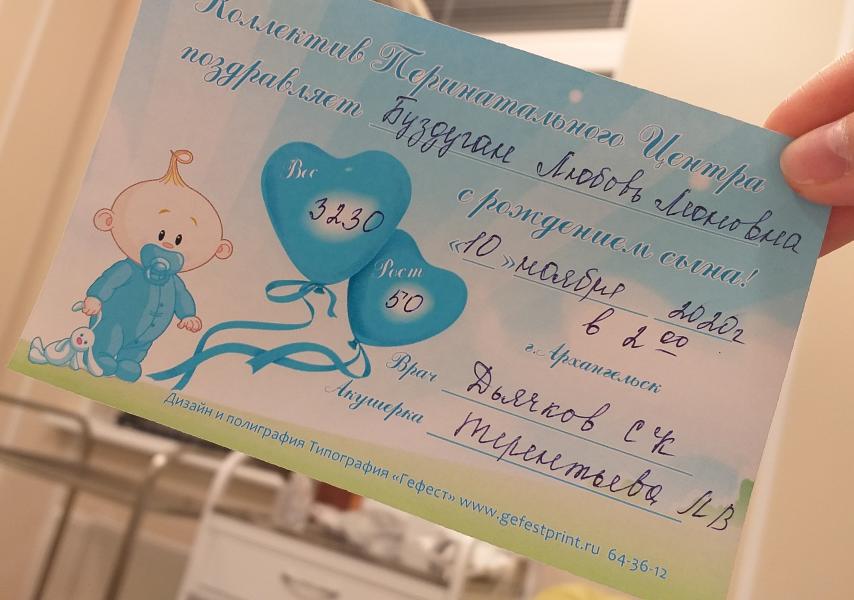 Коллектив Перинатального Центра
поздравляет Буздуган Любовь Леоновна
с рождением сына!
Вес
3230
Рост
50
«10» ноября 2020г
в 2 00
г. Архангельск
Врач Дьячков С К
Акушерка Терентьева Л В
Дизайн и полиграфия Типография «Гефест» www.gefestprint.ru 64-36-12